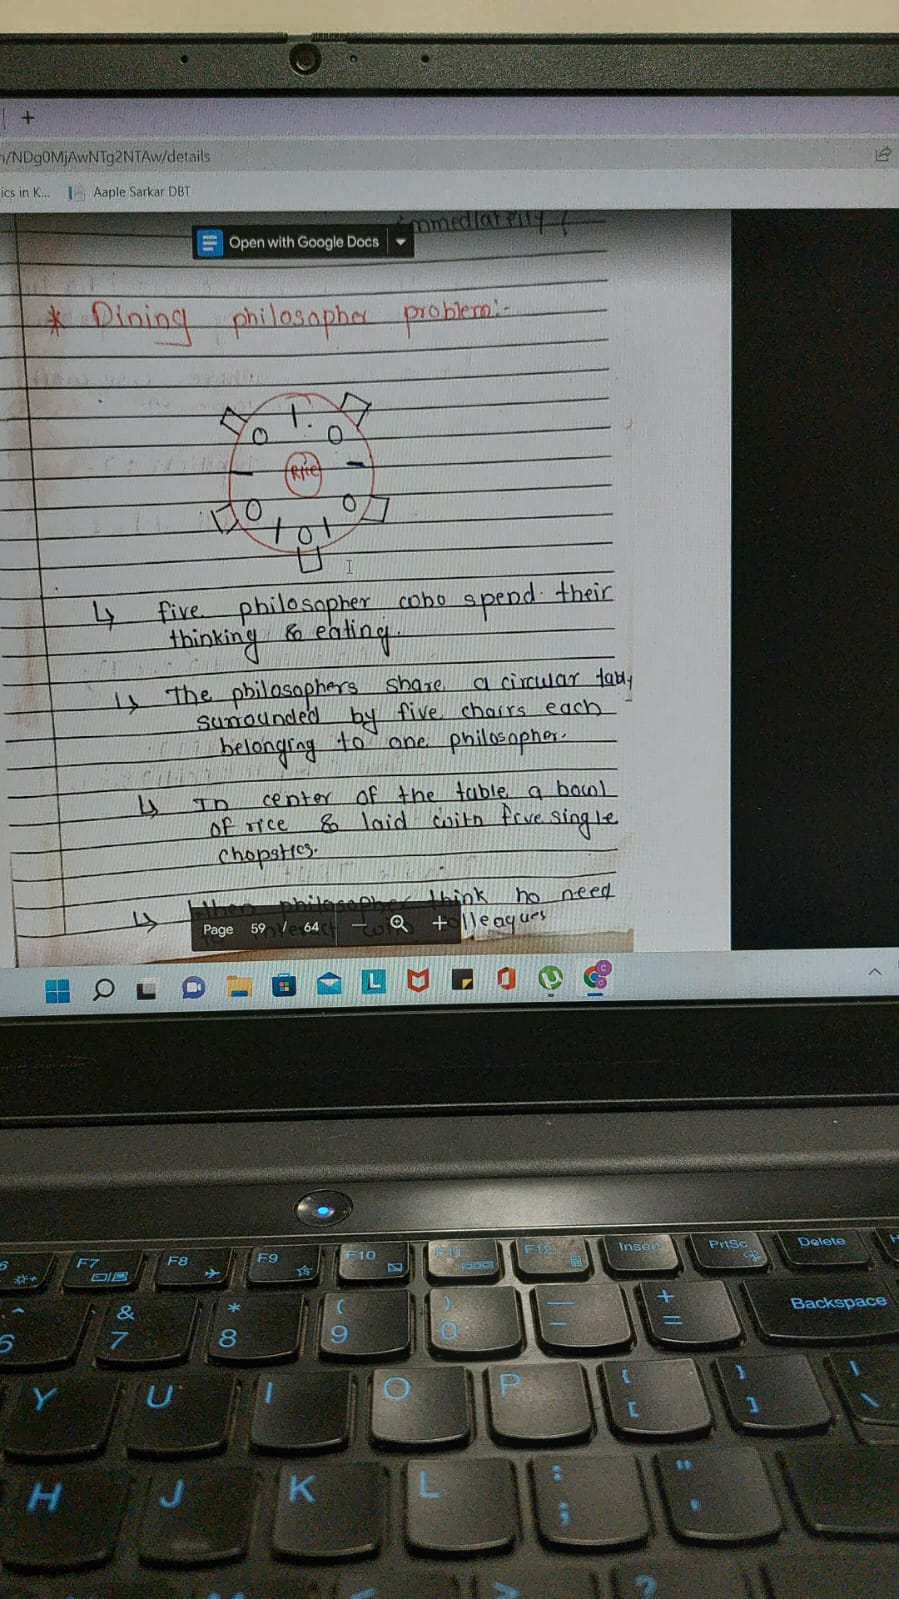 +
n/NDg0MjAwNTg2NTAw/details
ics in K... Aaple Sarkar DBT
immediately
Open with Google Docs
* Dining philosopher problem:-
Rice
↳ five philosopher who spend their
thinking & eating.
↳ The philosophers share a circular table
surrounded by five chairs each
belonging to one philosopher.
↳ In center of the table a bowl
of rice & laid with five single
chopstics.
↳ When philosopher think no need
colleagues
Page 59 / 64 — +
F7 F8 F9 F10 F11 F12 Insert PrtSc Delete
6 & 7 * 8 ( 9 ) 0 — - + = Backspace
Y U I O P { [ } ] | \
H J K L : ; " '
< > ?